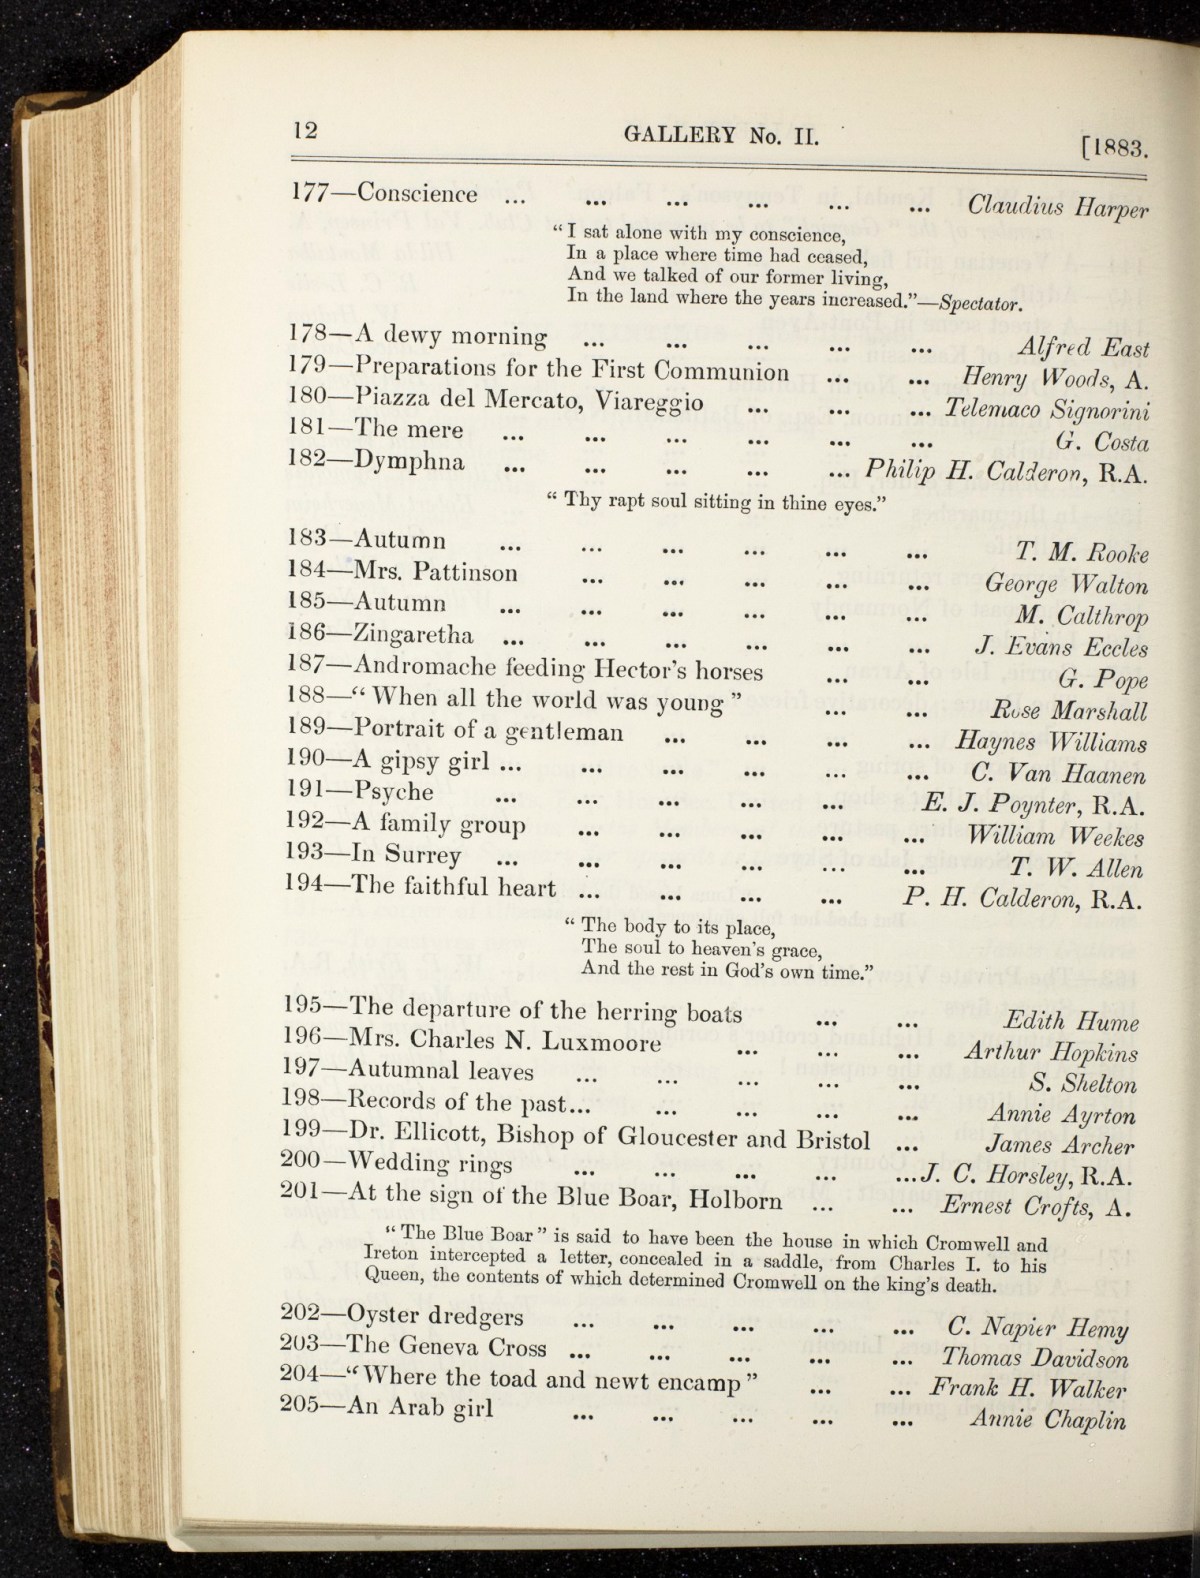 12 GALLERY No. II. [1883.
177—Conscience ... ... ... ... ... ... Claudius Harper
“ I sat alone with my conscience,
In a place where time had ceased,
And we talked of our former living,
In the land where the years increased.”—Spectator.
178—A dewy morning ... ... ... ... ... Alfred East
179—Preparations for the First Communion ... ... Henry Woods, A.
180—Piazza del Mercato, Viareggio ... ... ... Telemaco Signorini
181—The mere ... ... ... ... ... ... G. Costa
182—Dymphna ... ... ... ... ... Philip H. Calderon, R.A.
“ Thy rapt soul sitting in thine eyes.”
183—Autumn ... ... ... ... ... ... T. M. Rooke
184—Mrs. Pattinson ... ... ... ... ... George Walton
185—Autumn ... ... ... ... ... ... M. Calthrop
186—Zingaretha ... ... ... ... ... ... J. Evans Eccles
187—Andromache feeding Hector's horses ... ... G. Pope
188—“ When all the world was young ” ... ... Rose Marshall
189—Portrait of a gentleman ... ... ... ... Haynes Williams
190—A gipsy girl ... ... ... ... ... ... C. Van Haanen
191—Psyche ... ... ... ... ... E. J. Poynter, R.A.
192—A family group ... ... ... ... ... William Weekes
193—In Surrey ... ... ... ... ... ... T. W. Allen
194—The faithful heart ... ... ... ... P. H. Calderon, R.A.
“ The body to its place,
The soul to heaven's grace,
And the rest in God's own time.”
195—The departure of the herring boats ... ... Edith Hume
196—Mrs. Charles N. Luxmoore ... ... ... Arthur Hopkins
197—Autumnal leaves ... ... ... ... ... S. Shelton
198—Records of the past... ... ... ... ... Annie Ayrton
199—Dr. Ellicott, Bishop of Gloucester and Bristol ... James Archer
200—Wedding rings ... ... ... ... ...J. C. Horsley, R.A.
201—At the sign of the Blue Boar, Holborn ... ... Ernest Crofts, A.
“ The Blue Boar ” is said to have been the house in which Cromwell and
Ireton intercepted a letter, concealed in a saddle, from Charles I. to his
Queen, the contents of which determined Cromwell on the king's death.
202—Oyster dredgers ... ... ... ... ... C. Napier Hemy
203—The Geneva Cross ... ... ... ... ... Thomas Davidson
204—“ Where the toad and newt encamp ” ... ... Frank H. Walker
205—An Arab girl ... ... ... ... ... Annie Chaplin